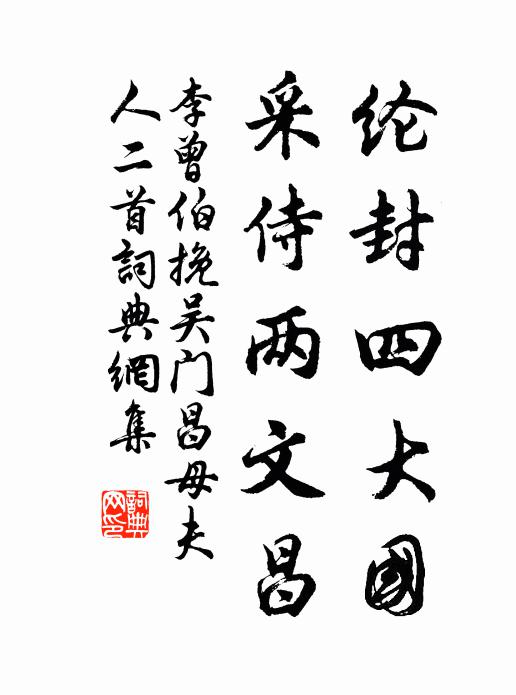 纶封四大國
采侍两文昌
李曾伯挽吴门昌母夫
人二首詞典網集
詞典网印